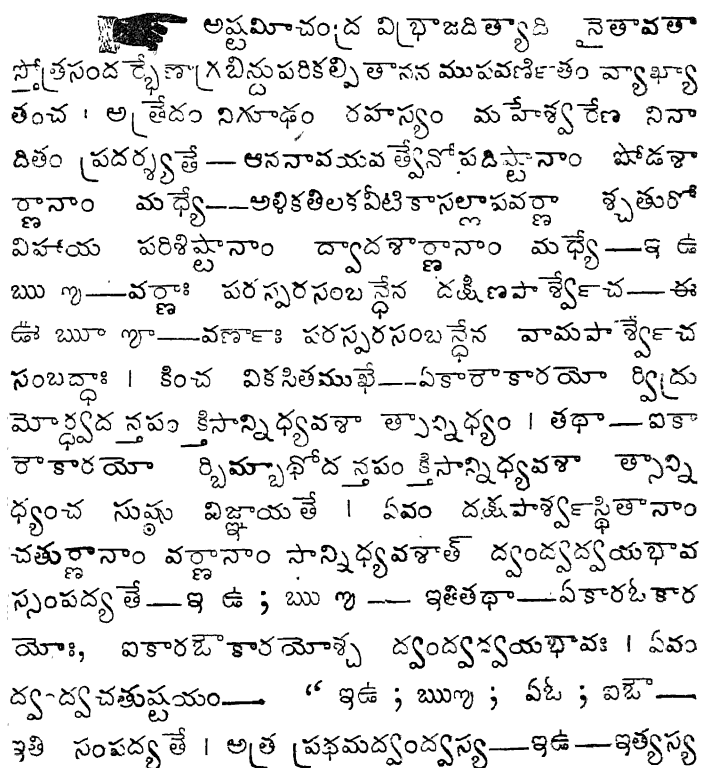 అష్టమీచంద్ర విభ్రాజదిత్యాది నైతావతా
స్తోత్రసందర్భేణాగ్రబిన్దుపరికల్పితానన ముపవర్ణితం వ్యాఖ్యా
తంచ । అత్రేదం నిగూఢం రహస్యం మహేశ్వరేణ నినా
దితం ప్రదర్శ్యతే — ఆననావయవత్వేనోపదిష్టానాం షోడశా
ర్ణానాం మధ్యే——అళికతిలకవీటికాసల్లాపవర్ణా శ్చతురో
విహాయ పరిశిష్టానాం ద్వాదశార్ణానాం మధ్యే—ఇ ఉ
ఋ ఌ—వర్ణాః పరస్పరసంబన్ధేన దక్షిణపార్శ్వేచ—ఈ
ఊ ౠ ౡ—వర్ణాః పరస్పరసంబన్ధేన వామపార్శ్వేచ
సంబద్ధాః । కించ వికసితముఖే—ఏకారౌకారయో ర్విద్రు
మోర్ధ్వదన్తపంక్తిసాన్నిధ్యవశా త్సాన్నిధ్యం । తథా—ఐకా
రౌకారయో ర్బిమ్బాథోదన్తపంక్తిసాన్నిధ్యవశా త్సాన్ని
ధ్యంచ సుష్ఠు విజ్ఞాయతే । ఏవం దక్షపార్శ్వస్థితానాం
చతుర్ణానాం వర్ణానాం సాన్నిధ్యవశాత్ ద్వంద్వద్వయభావ
స్సంపద్యతే—ఇ ఉ ; ఋ ఌ — ఇతితథా—ఏకారఓకార
యోః, ఐకారఔకారయోశ్చ ద్వంద్వద్వయభావః । ఏవం
ద్వంద్వచతుష్టయం—. “ ఇఉ ; ఋఌ ; ఏఓ ; ఐఔ—
ఇతి సంపద్యతే । అత్ర ప్రథమద్వంద్వస్య—ఇఉ—ఇత్యస్య